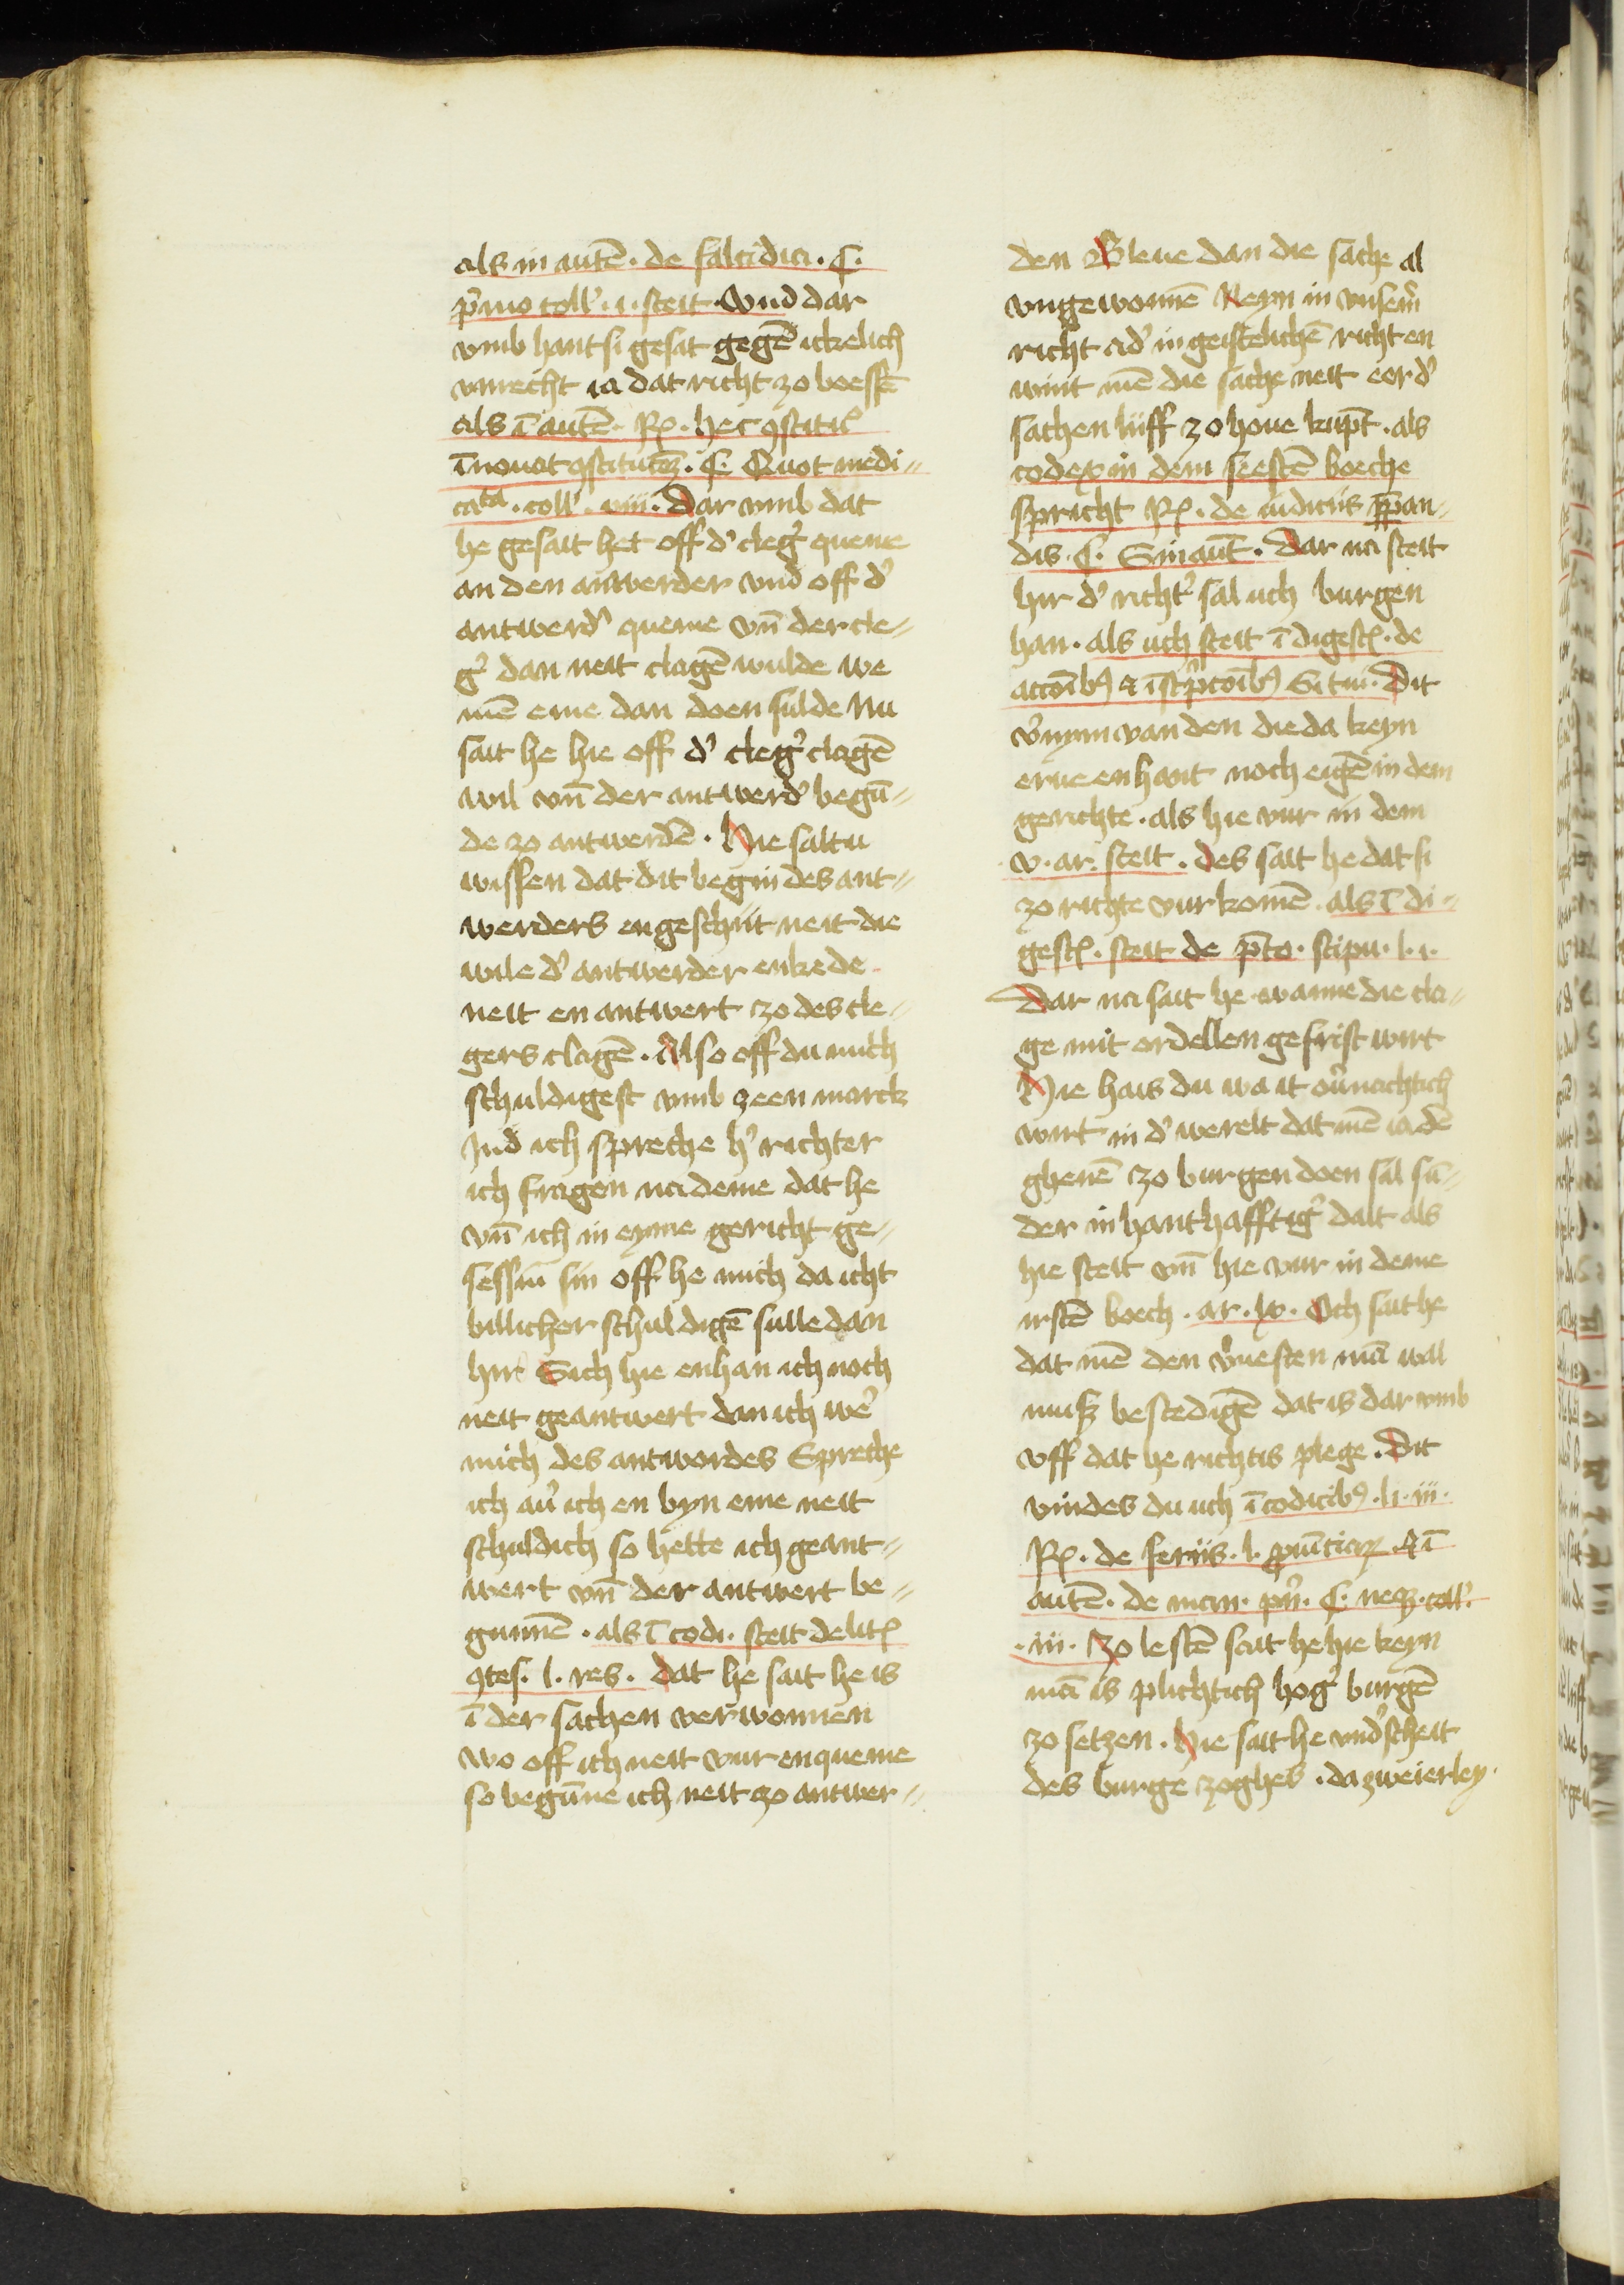 als in autē. de falcidia. ¶.
p̄mo coll'. i. steit. Vnd dar
vmb hant si gesat gegē ickelich
vnrecht ia dat richt zo boessē
als ī autē. Rx. hec ꝯstituc̄
īnouat ꝯstitucōꝫ. ¶. Quot medi-
cata. coll'. viii. Dar vmb dat
he gesait het off d' cleg' queme
an den antwerder vnd off d'
antwerd' queme vn̄ der cle-
g' dan neit clagē wulde we
mē eme dan doen sulde Nu
sait he hie off d' cleg' clagē
wil vn̄ der antwerd' begū-
de zo antwerdē. Hie saltu
wissen dat dit begin des ant-
werders engeschiit neit die
wile d' antwerder enkede
neit en antwert zo des cle-
gers clagē. Also off du mich
schuldigest vmb zeen marck
Ind ich spreche h' richter
ich fragen na deme dat he
vn̄ ich in eyme gericht ge-
sessin sin off he mich da icht
billicher schuldigē sulle dan
hir Sich hie enhan ich noch
neit geantwert dan ich we'
mich des antwordes Spreche
ich au' ich en byn eme neit
schuldich so hette ich geant-
wert vn̄ der antwert be-
gunnē. als ī codi. steit de litꝭ
ꝯtes. l. res. dat he sait he is
ī der sachen verwonnen
wo off ich neit vur enqueme
so begūne ich neit zo antwer-
den Bleue dan die sache al
vngewonnē Neyn in vnsem̄
richt ad' in geistelichē richten
wint mē die sache neit eer d'
sachen liiff zo houe kūpt. als
codex in dem seestē boeche
spricht Rx. de iudiciis p̄pan-
dis. ¶. Sin aut̄. Dar na steit
hir d' richt' sal uch burgen
han. als uch steit ī digestꝭ. de
accoībꝰ ⁊ īscpcoībꝰ Si tui. Dit
v'nym van den die da keyn
erue enhant noch eigē in dem
gerichte. als hie vur in dem
v. ar. steit. des sait he dat si
zo richte vurkomē. als ī di-
gestꝭ. steit de p̄to. stipu. l. i.
Dar na sait he wanne die cla-
ge mit ordellen gefrist wirt
Hie hais du wa it ou'nachtich
wirt in d' werelt dat mē ia dē
ghenē zo burgen doen sal sū-
der in hanthafftig' dait als
hie steit vn̄ hie vur in deme
irstē boech. ar. lx. Och sait he
dat mē den v'uesten mā wal
muss bestedigē dat is dar vmb
vff dat he richtis plege. Dit
vindes du uch ī codicibꝰ. li. iii.
Rx. de feriis. l. puīciaꝝ. ⁊ ī
autē. de man. pn̄. ¶. neqꝫ. coll'.
.iii. Zo lestē sait he hie keyn
mā is plichtich hog' burgē
zo setzen. Hie sait he vnd'scheit
des burge zoghes. da zweierley.